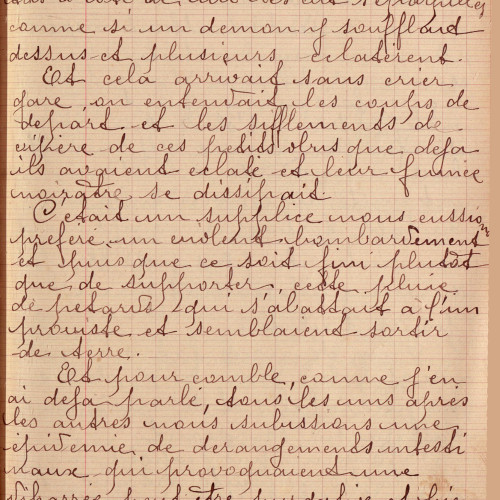 comme si un demon y soufflant
dessus et plusieurs eclatèrent.
Et cela arrivait sans crier
gare, on entendait les coups de
depart et les sifflements de
vipère de ces petits obus que deja
ils avaient eclaté et leur fumée
noirâtre se dissipait.
C'etait un supplice nous eussions
preferé un violent bombardement
et puis que ce soit fini plutôt
que de supporter cette pluie
de petards qui s'abattait à l'im
proviste et semblaient sortir
de terre.
Et pour comble, comme j'en
ai deja parlé, tous les uns après
les autres nous subissions une
epidemie de derangements intesti
naux qui provoquaient une